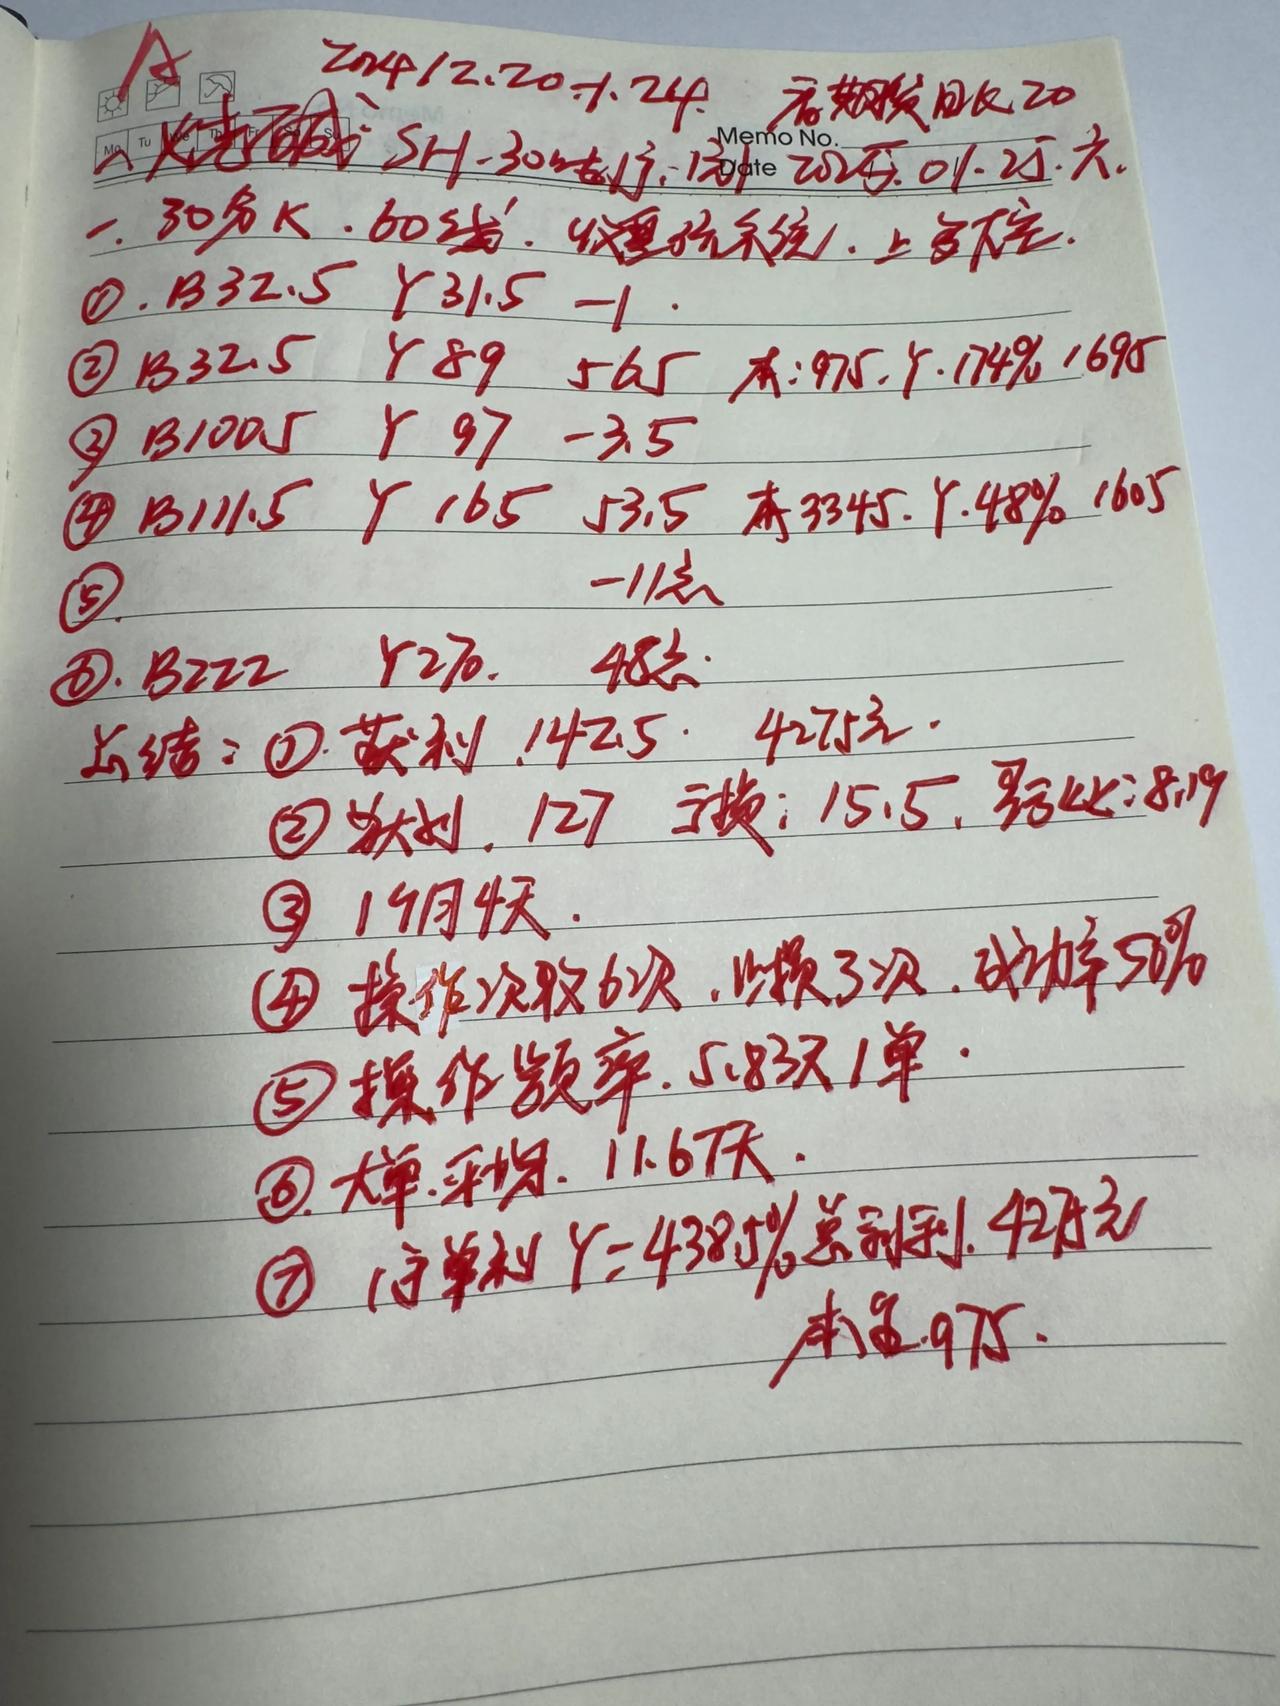 A
2024.12.20-1.24. 日K20
Memo No.
Mo Tu We Th Fr Sa Su
烧碱 SH-30 Date 2025.01.25.六.
一.30分K.60线.收盘 系统.上多下空.
①.B32.5 Y31.5 -1.
②B32.5 Y89 565 本:975.Y.174% 1695
③B100.5 Y97 -3.5
④B111.5 Y165 53.5 本3345.Y.48% 1605
⑤. -11点
⑥.B222 Y270. 48点.
总结:①.获利.142.5. 4275元.
②获利.127 亏损:15.5. 比:8.19
③1个月4天.
④操作次数6次.止损3次.成功率50%
⑤操作频率.5.83天1单.
⑥大单.平均.11.67天.
⑦ 单利Y=438.5%总利. 4275元
本金.975.